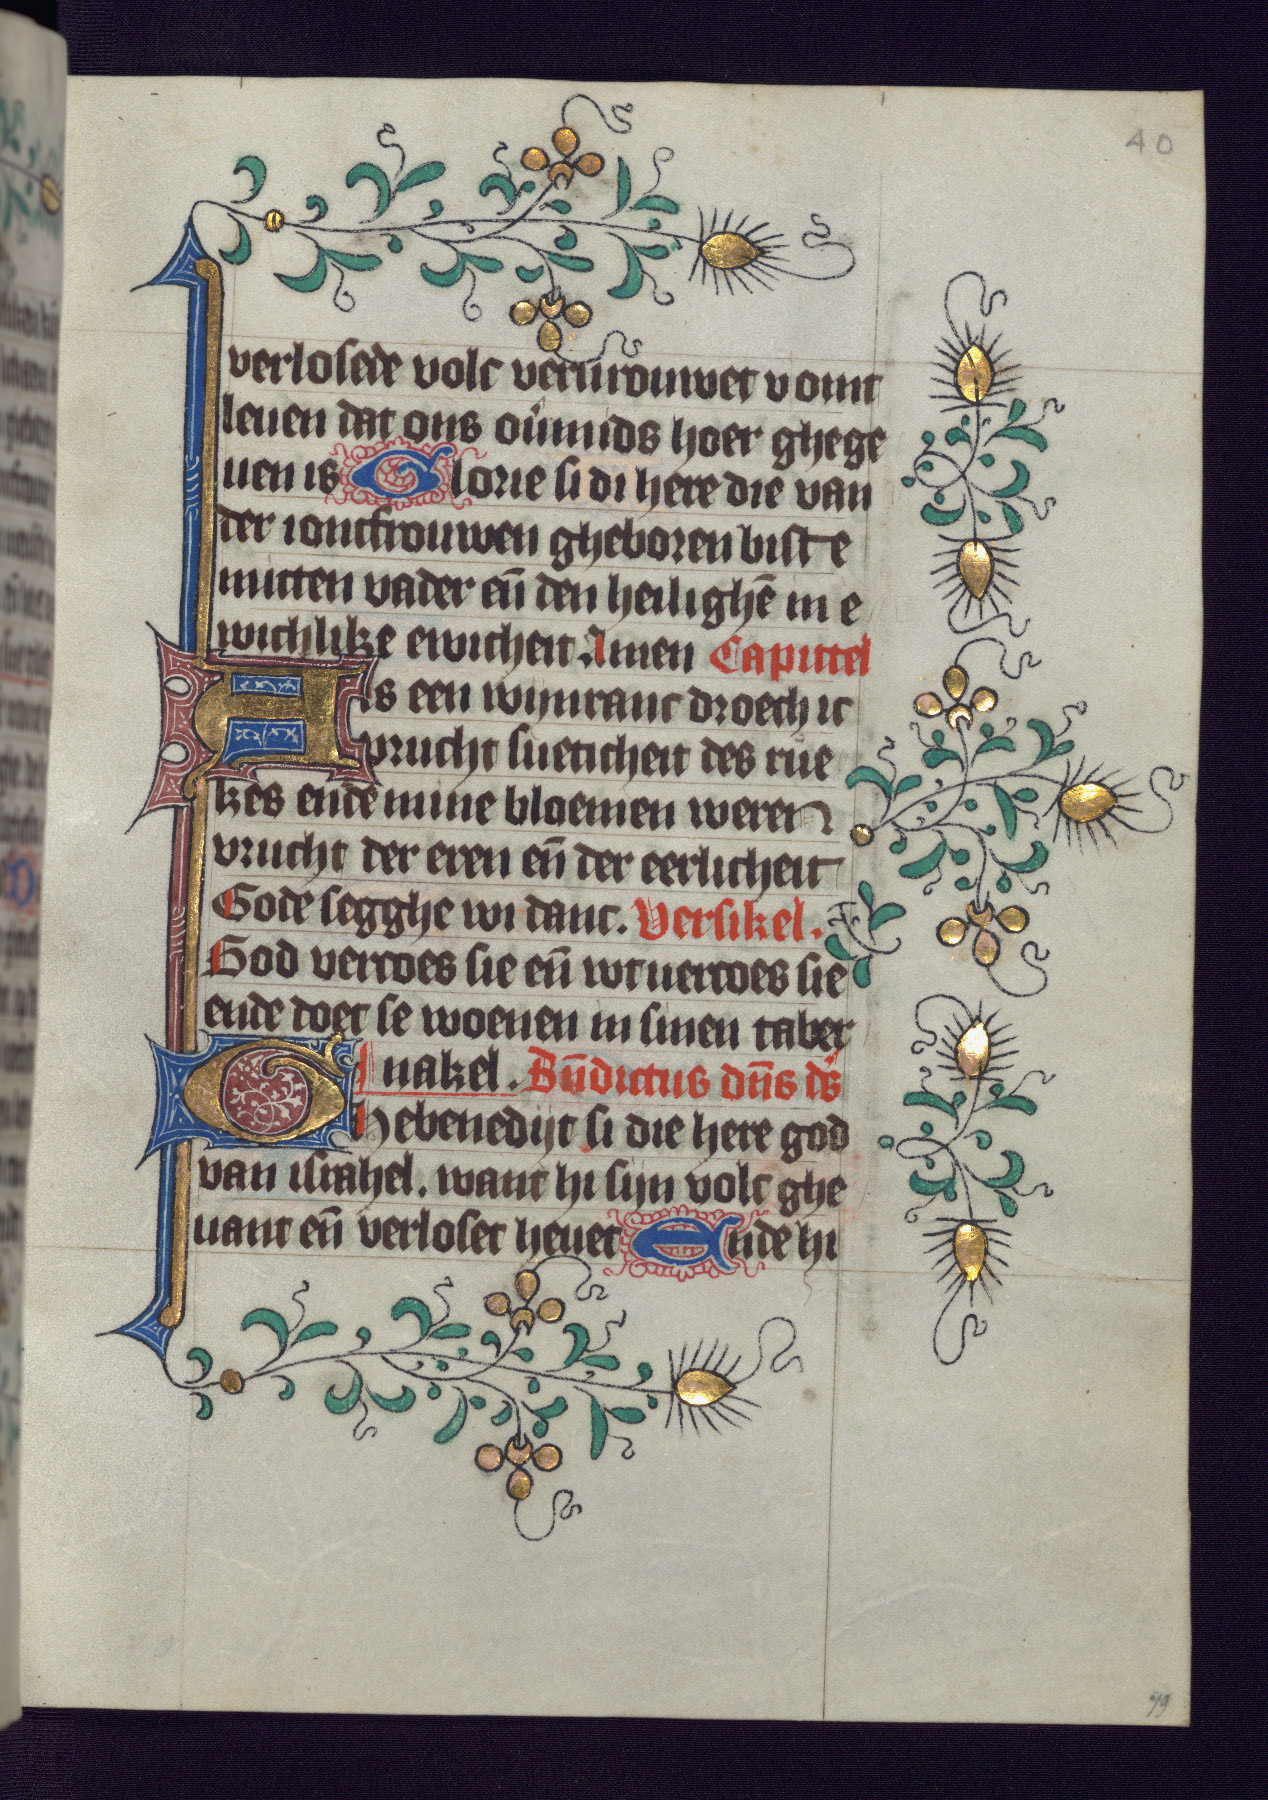 40
verlosede volc vertrouwet vomt
leuen dat ons ou͛mids hoer ghege
uen is Glorie si di here die van
der ioncfrouwen gheboren biste
mitten vader en̄ den heilighē in e
wichlike ewicheit Amen Capittel
Als een wijnranc droech ic
vrucht sueticheit des rue
kes ende mine bloemen weren
vrucht der eren en̄ der eerlicheit
Gode segghe wi danc. Versikel.
God vercoes sie en̄ wtuercoes sie
ende doet se woenen in sinen taber
nakel. Bn̄dictus dn̄s ds̄
Ghebenedijt si die here god
van israhel. want hi sijn volc ghe
uant en̄ verloset heuet Ende hi
79